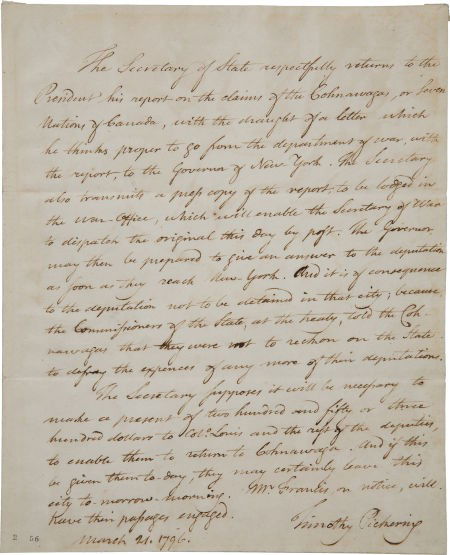 The Secretary of State respectfully returns to the
President his report on the claims of the Cohnawagas, or Seven
Nations of Canada, with the draught of a letter which
he thinks proper to go from the department of war, with
the report, to the Governor of New York. The Secretary
also transmits a press copy of the report, to be lodged in
the War-Office, which will enable the Secretary of War
to dispatch the original this day by post. The Governor
may then be prepared to give an answer to the deputation
as soon as they reach New-York. And it is of consequence
to the deputation not to be detained in that city; because
the Commissioners of the State, at the treaty, told the Coh-
nawagas that they were not to reckon on the State
to defray the expences of any more of their deputations.
The Secretary supposes it will be necessary to
make a present of two hundred and fifty or three
hundred dollars to Colo. Louis and the rest of the deputies,
to enable them to return to Cohnawaga. And if this
be given them to-day, they may certainly leave this
city to-morrow morning. Mr. Francis, on notice, will
have their passages engaged.
Timothy Pickering
March 21. 1796.
2 56